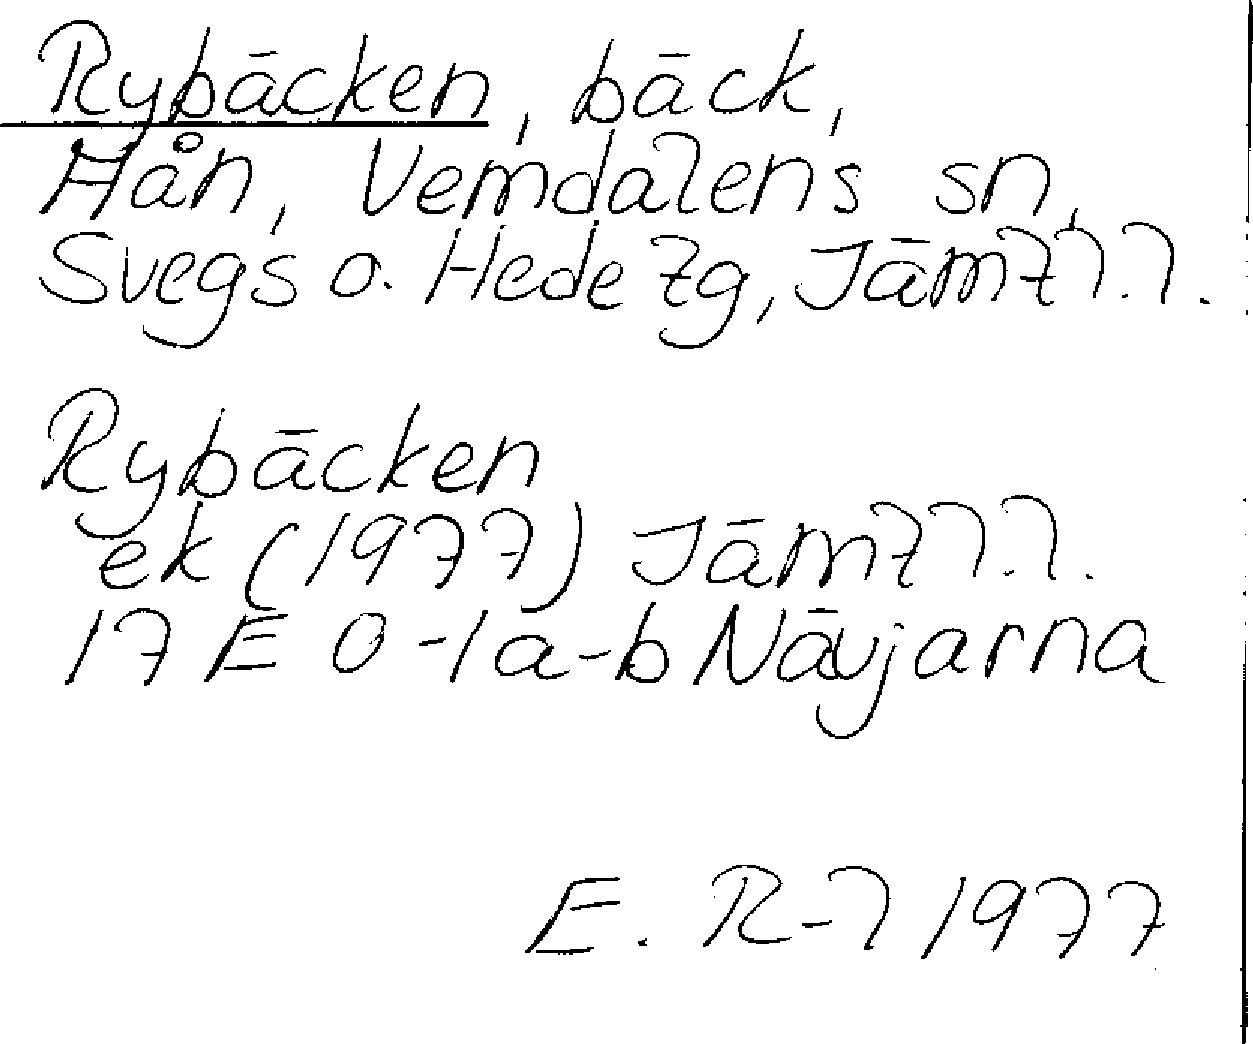 Rybäcken, bäck,
Hån, Vemdalens sn,
Svegs o. Hede tg, Jämtl.l.
Rybäcken
ek (1977) Jämtl.l.
17 E 0-1a-b Nävjarna
E. R-l 1977